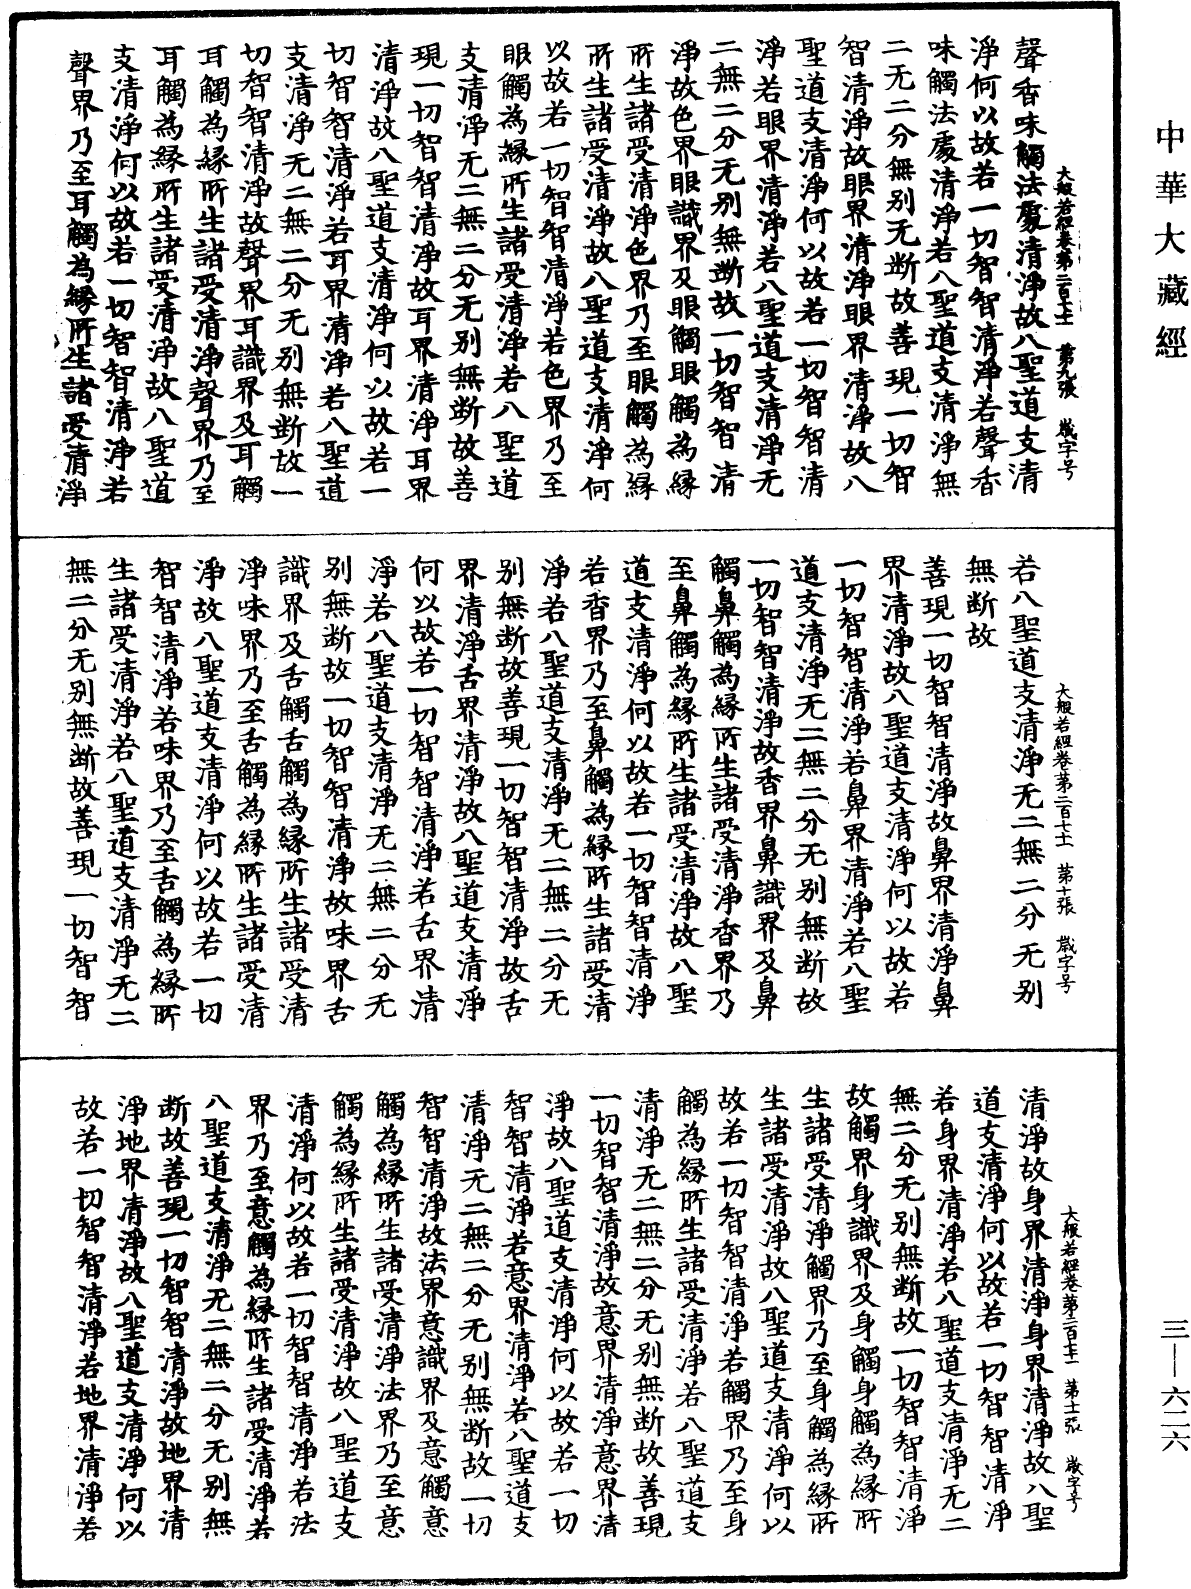 中華大藏經
三—六二六
大般若經卷第二百七十二 第九張 歲字号
聲香味觸法處清淨故八聖道支清
淨何以故若一切智智清淨若聲香
味觸法處清淨若八聖道支清淨無
二无二分無別无斷故善現一切智
智清淨故眼界清淨眼界清淨故八
聖道支清淨何以故若一切智智清
淨若眼界清淨若八聖道支清淨无
二無二分无別無斷故一切智智清
淨故色界眼識界及眼觸眼觸為緣
所生諸受清淨色界乃至眼觸為緣
所生諸受清淨故八聖道支清淨何
以故若一切智智清淨若色界乃至
眼觸為緣所生諸受清淨若八聖道
支清淨无二無二分无別無斷故善
現一切智智清淨故耳界清淨耳界
清淨故八聖道支清淨何以故若一
切智智清淨若耳界清淨若八聖道
支清淨无二無二分无別無斷故一
切智智清淨故聲界耳識界及耳觸
耳觸為緣所生諸受清淨聲界乃至
耳觸為緣所生諸受清淨故八聖道
支清淨何以故若一切智智清淨若
聲界乃至耳觸為緣所生諸受清淨
大般若經卷第二百七十二 第十張 歲字号
若八聖道支清淨无二無二分无別
無斷故
善現一切智智清淨故鼻界清淨鼻
界清淨故八聖道支清淨何以故若
一切智智清淨若鼻界清淨若八聖
道支清淨无二無二分无別無斷故
一切智智清淨故香界鼻識界及鼻
觸鼻觸為緣所生諸受清淨香界乃
至鼻觸為緣所生諸受清淨故八聖
道支清淨何以故若一切智智清淨
若香界乃至鼻觸為緣所生諸受清
淨若八聖道支清淨无二無二分无
別無斷故善現一切智智清淨故舌
界清淨舌界清淨故八聖道支清淨
何以故若一切智智清淨若舌界清
淨若八聖道支清淨无二無二分无
別無斷故一切智智清淨故味界舌
識界及舌觸舌觸為緣所生諸受清
淨味界乃至舌觸為緣所生諸受清
淨故八聖道支清淨何以故若一切
智智清淨若味界乃至舌觸為緣所
生諸受清淨若八聖道支清淨无二
無二分无別無斷故善現一切智智
大般若經卷第二百七十二 第十一張 歲字号
清淨故身界清淨身界清淨故八聖
道支清淨何以故若一切智智清淨
若身界清淨若八聖道支清淨无二
無二分无別無斷故一切智智清淨
故觸界身識界及身觸身觸為緣所
生諸受清淨觸界乃至身觸為緣所
生諸受清淨故八聖道支清淨何以
故若一切智智清淨若觸界乃至身
觸為緣所生諸受清淨若八聖道支
清淨无二無二分无別無斷故善現
一切智智清淨故意界清淨意界清
淨故八聖道支清淨何以故若一切
智智清淨若意界清淨若八聖道支
清淨无二無二分无別無斷故一切
智智清淨故法界意識界及意觸意
觸為緣所生諸受清淨法界乃至意
觸為緣所生諸受清淨故八聖道支
清淨何以故若一切智智清淨若法
界乃至意觸為緣所生諸受清淨若
八聖道支清淨无二無二分无別無
斷故善現一切智智清淨故地界清
淨地界清淨故八聖道支清淨何以
故若一切智智清淨若地界清淨若